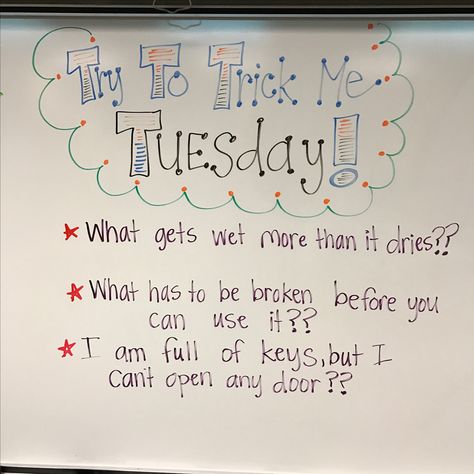 Try To Trick Me
Tuesday!
What gets wet more than it dries??
What has to be broken before you
can use it??
I am full of keys, but I
can't open any door??